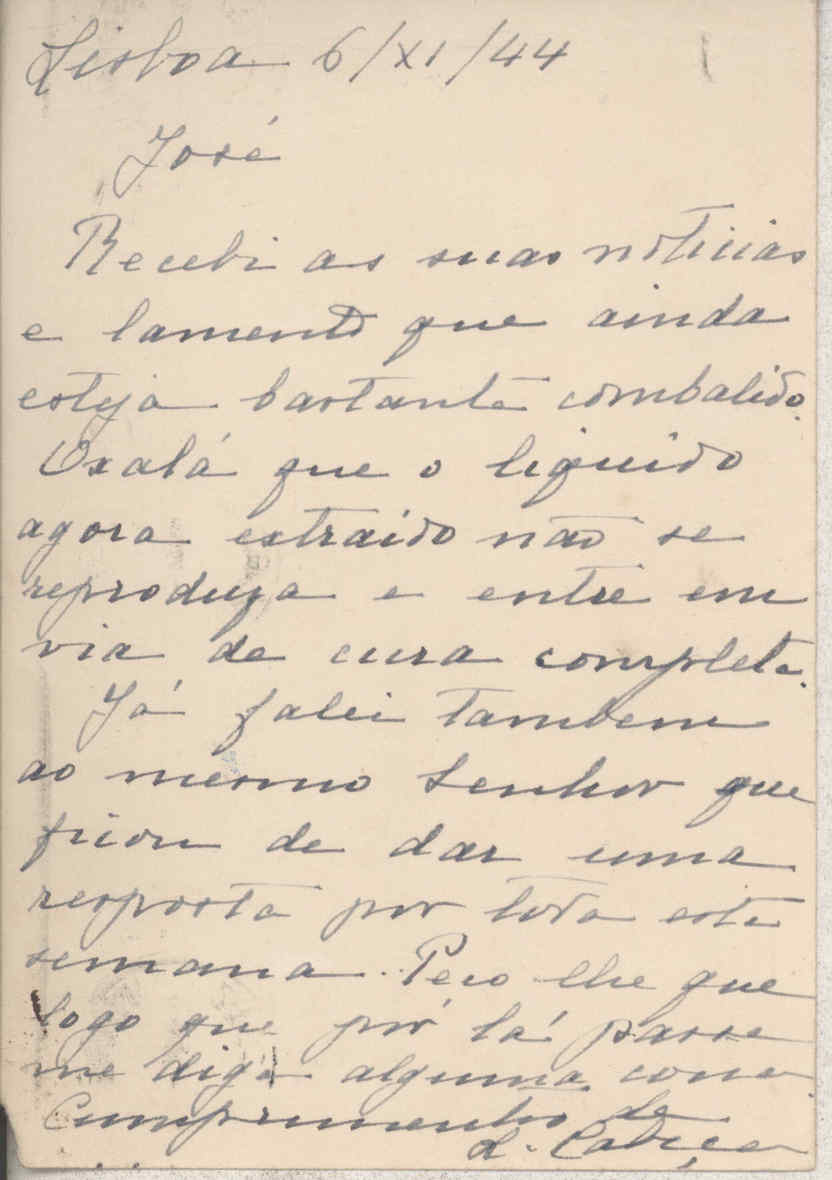 Lisboa 6/XI/44
José
Recebi as suas noticias
e lamento que ainda
esteja bastante combalido.
Oxalá que o liquido
agora extraído não se
reproduza e entre em
via de cura completa.
Já falei tambem
ao mesmo Senhor que
ficou de dar uma
resposta por toda esta
semana. Peço lhe que
logo que pôr lá passe
me diga alguma cousa
Cumprimentos de